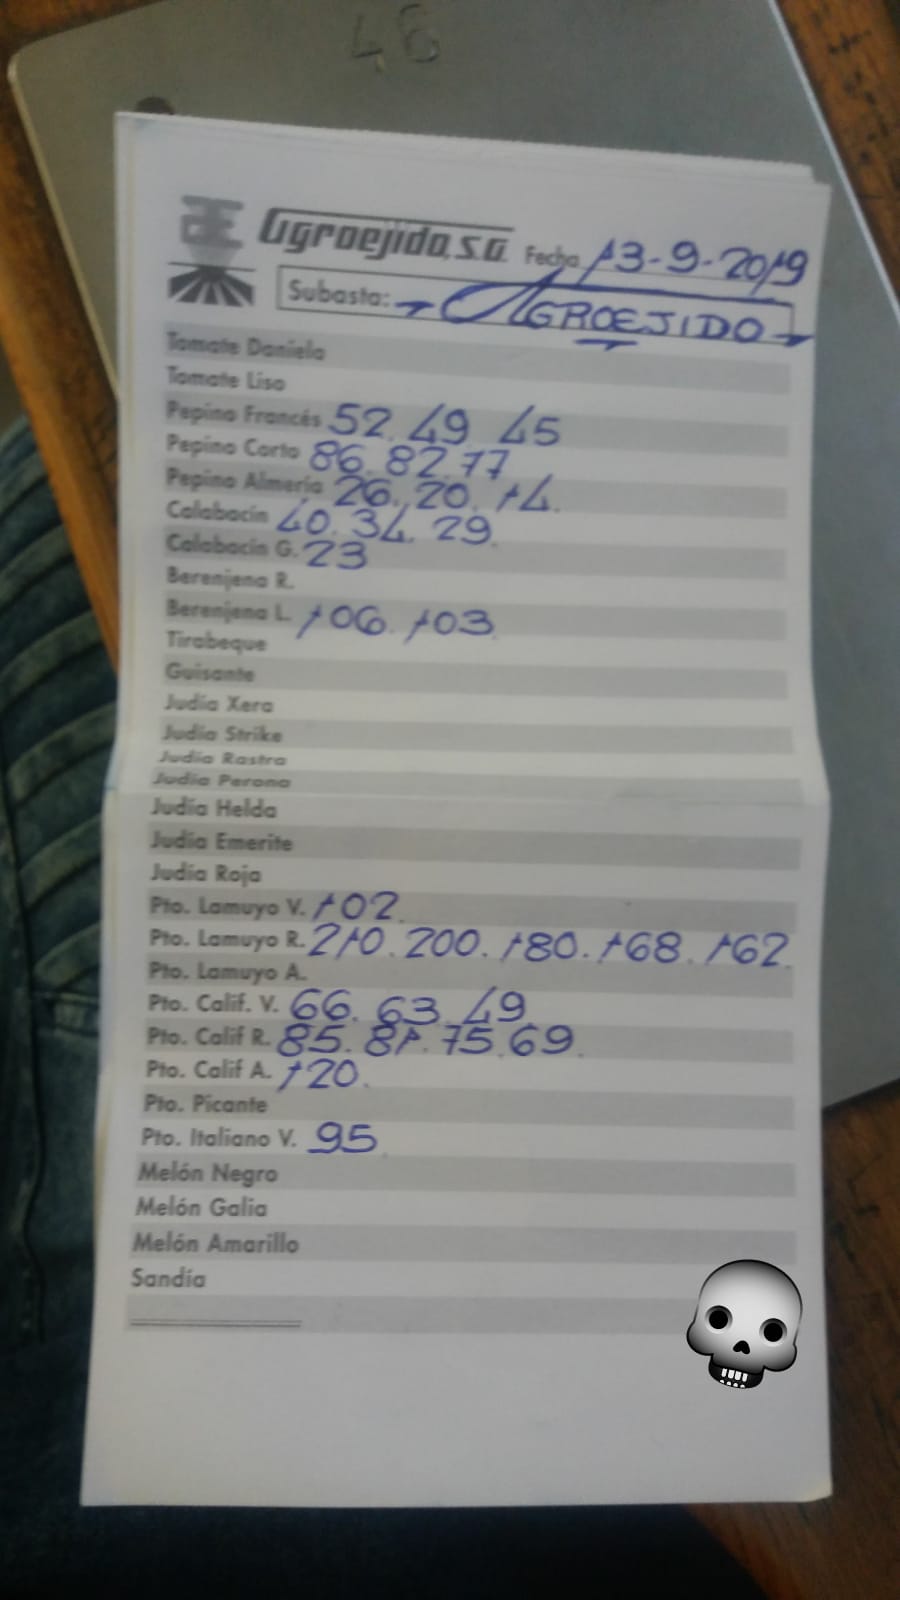 46
Agroejido, S.A. Fecha 13-9-2019
Subasta: AGROEJIDO
Tomate Daniela
Tomate Liso
Pepino Francés 52. 49. 45
Pepino Corto 86. 82. 77
Pepino Almería 26. 20. 14.
Calabacín 40. 34. 29.
Calabacín G. 23
Berenjena R.
Berenjena L. 106. 103.
Tirabeque
Guisante
Judía Xera
Judía Strike
Judía Rastra
Judía Perona
Judía Helda
Judía Emerite
Judía Roja
Pto. Lamuyo V. 102.
Pto. Lamuyo R. 210. 200. 180. 168. 162.
Pto. Lamuyo A.
Pto. Calif. V. 66. 63. 49
Pto. Calif R. 85. 81. 75. 69.
Pto. Calif A. 120.
Pto. Picante
Pto. Italiano V. 95.
Melón Negro
Melón Galia
Melón Amarillo
Sandía